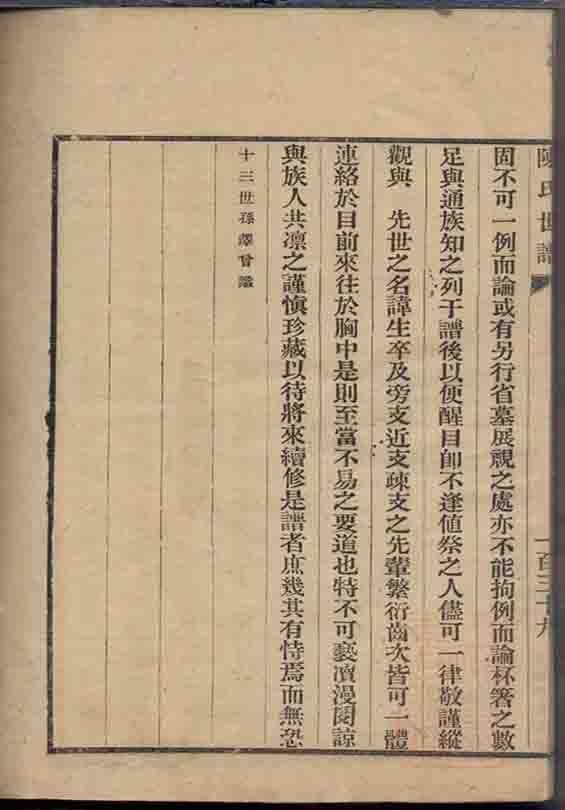 陳氏世譜
一百三十九
固不可一例而論或有另行省墓展視之處亦不能拘例而論杯箸之數
足與通族知之列于譜後以便醒目卽不逢值祭之人儘可一律敬謹縱
觀與 先世之名諱生卒及旁支近支疎支之先輩繁衍齒次皆可一體
連絡於目前來往於胸中是則至當不易之要道也特不可褻瀆漫閱諒
與族人共凛之謹慎珍藏以待將來續修是譜者庶幾其有恃焉而無恐
十三世孫澤曾識